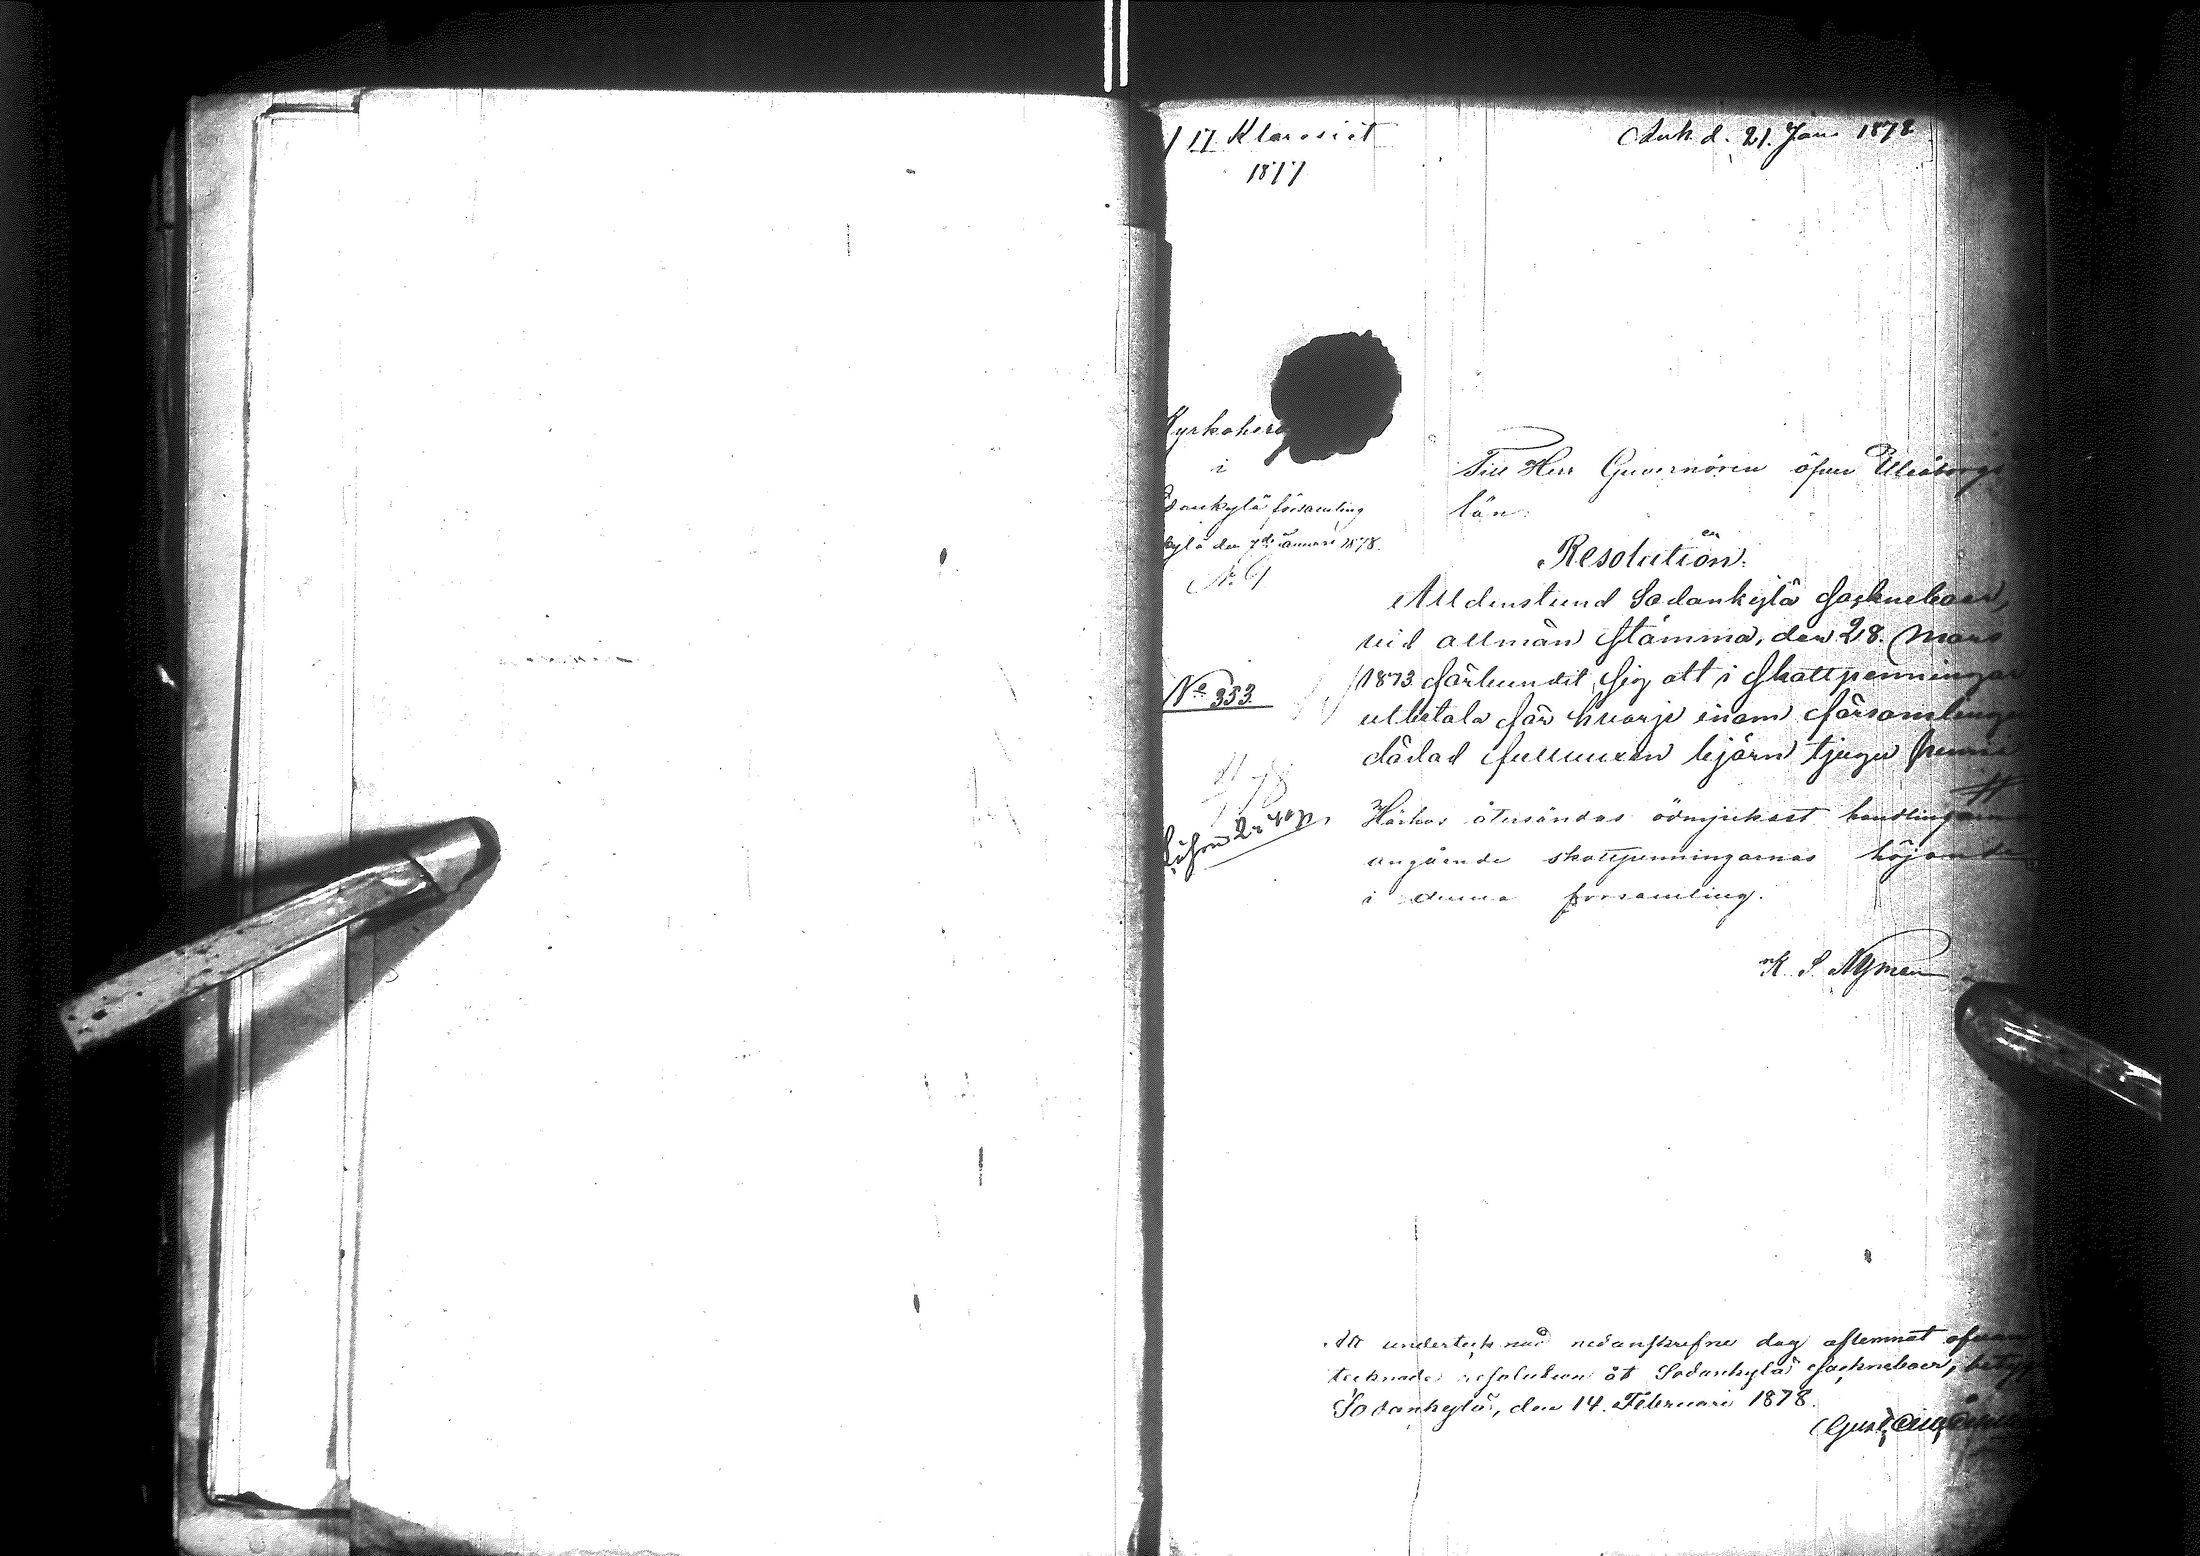 Ank d. 21. Jan. 1878
1877
Kyrkoher
i
Sodankylä församling
kylä den 7de Januari 1878.
No 6
Till Herr Guvernören öfver Uleåborgs
län.
Resolution.
Alldenstund Sodankylä Sockneboer,
vid allmän stämma, den 28. Mars
1873 förbundit sig att i skattpenningar
No 353.
utbetala för hvarje inom församlingen
dödad fullvuxen björn tjugu penni
Härhos återsändas ödmjukast handlingarna
angående skottpenningarnas höjande
i denna församling.
K. S. Nyman
Att undertecknad nedanskrefne dag aflemnat ofvan
tecknade resolution åt Sodankylä Sockneboer, betyg
Sodankylä, den 14. Februari 1878.